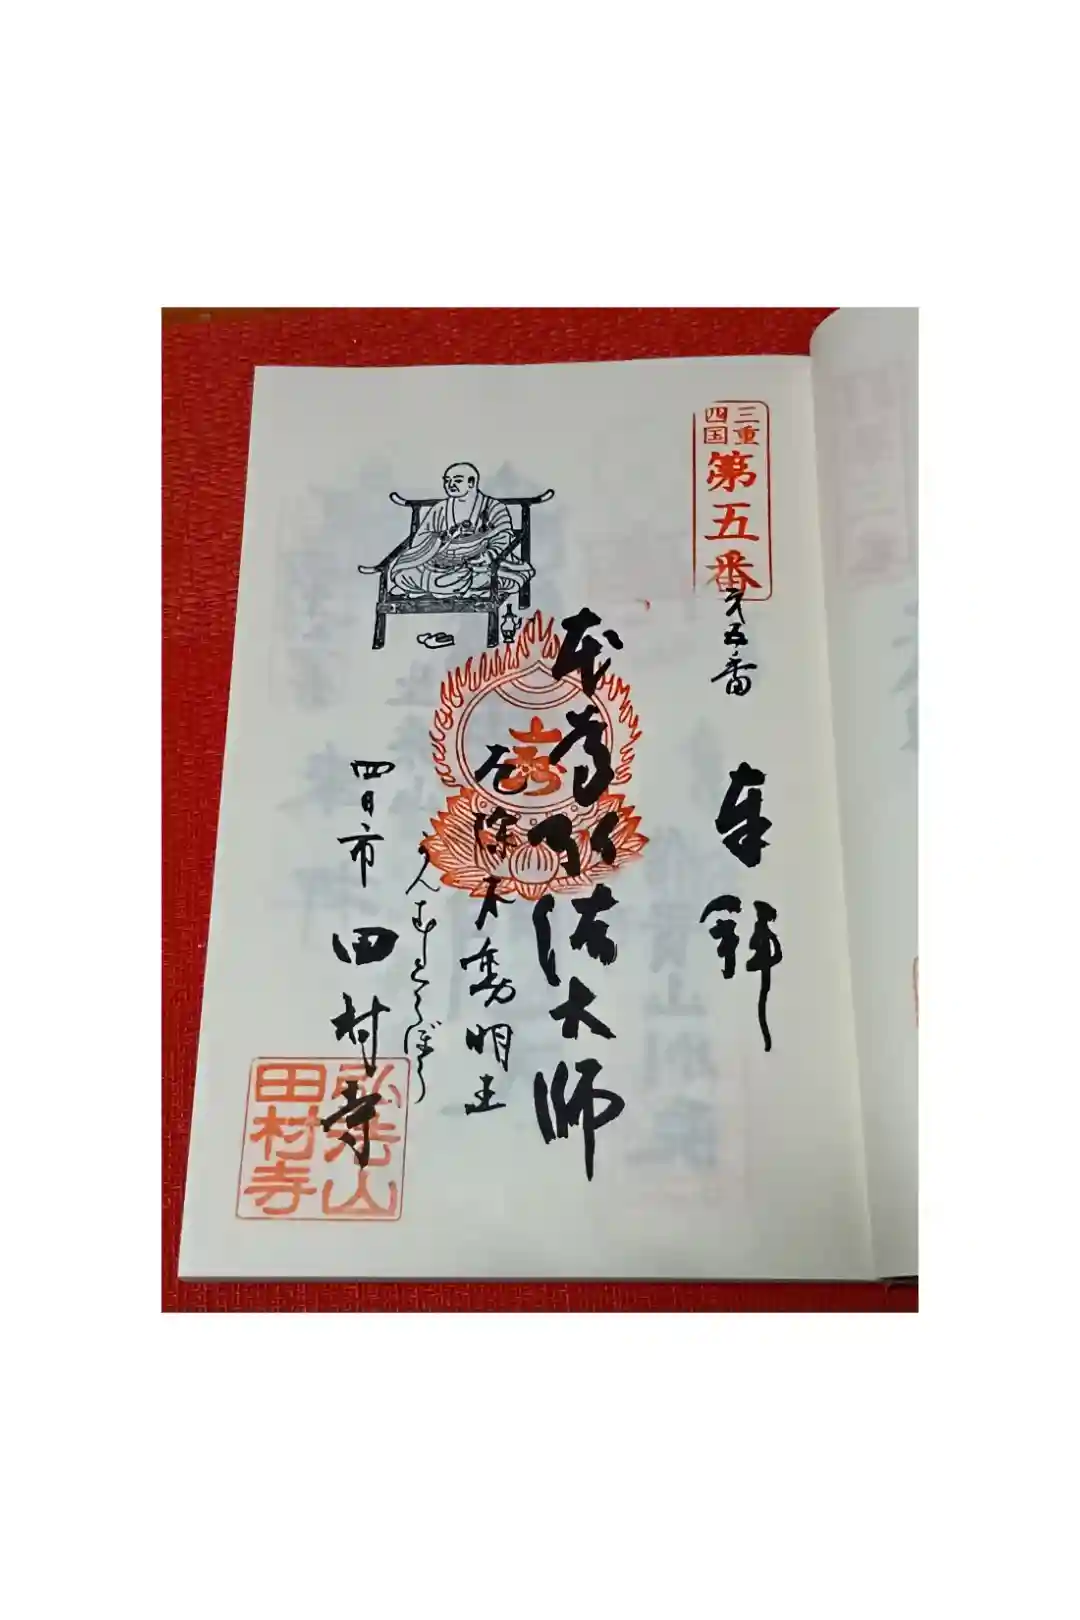 三重
四国
第五番
第五番
奉拜
本尊弘法大師
厄除不動明王
四日市 田村寺
弘法山
田村寺